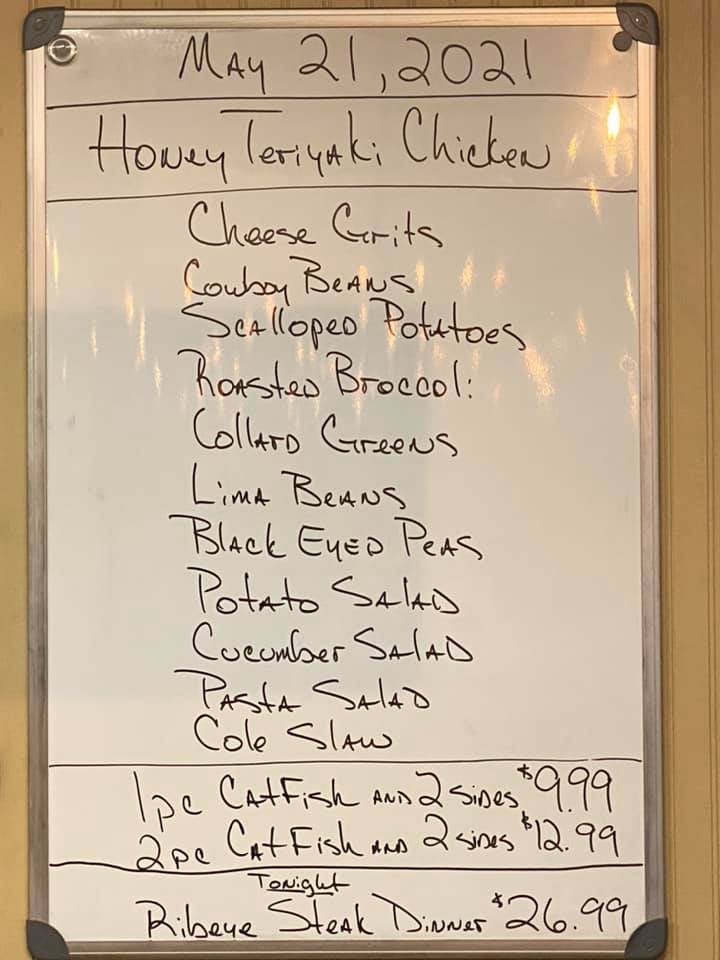 May 21, 2021
Honey Teriyaki Chicken
Cheese Grits
Cowboy Beans
Scalloped Potatoes
Roasted Broccoli
Collard Greens
Lima Beans
Black Eyed Peas
Potato Salad
Cucumber Salad
Pasta Salad
Cole Slaw
1pc CatFish and 2 sides $9.99
2pc CatFish and 2 sides $12.99
Tonight
Ribeye Steak Dinner $26.99